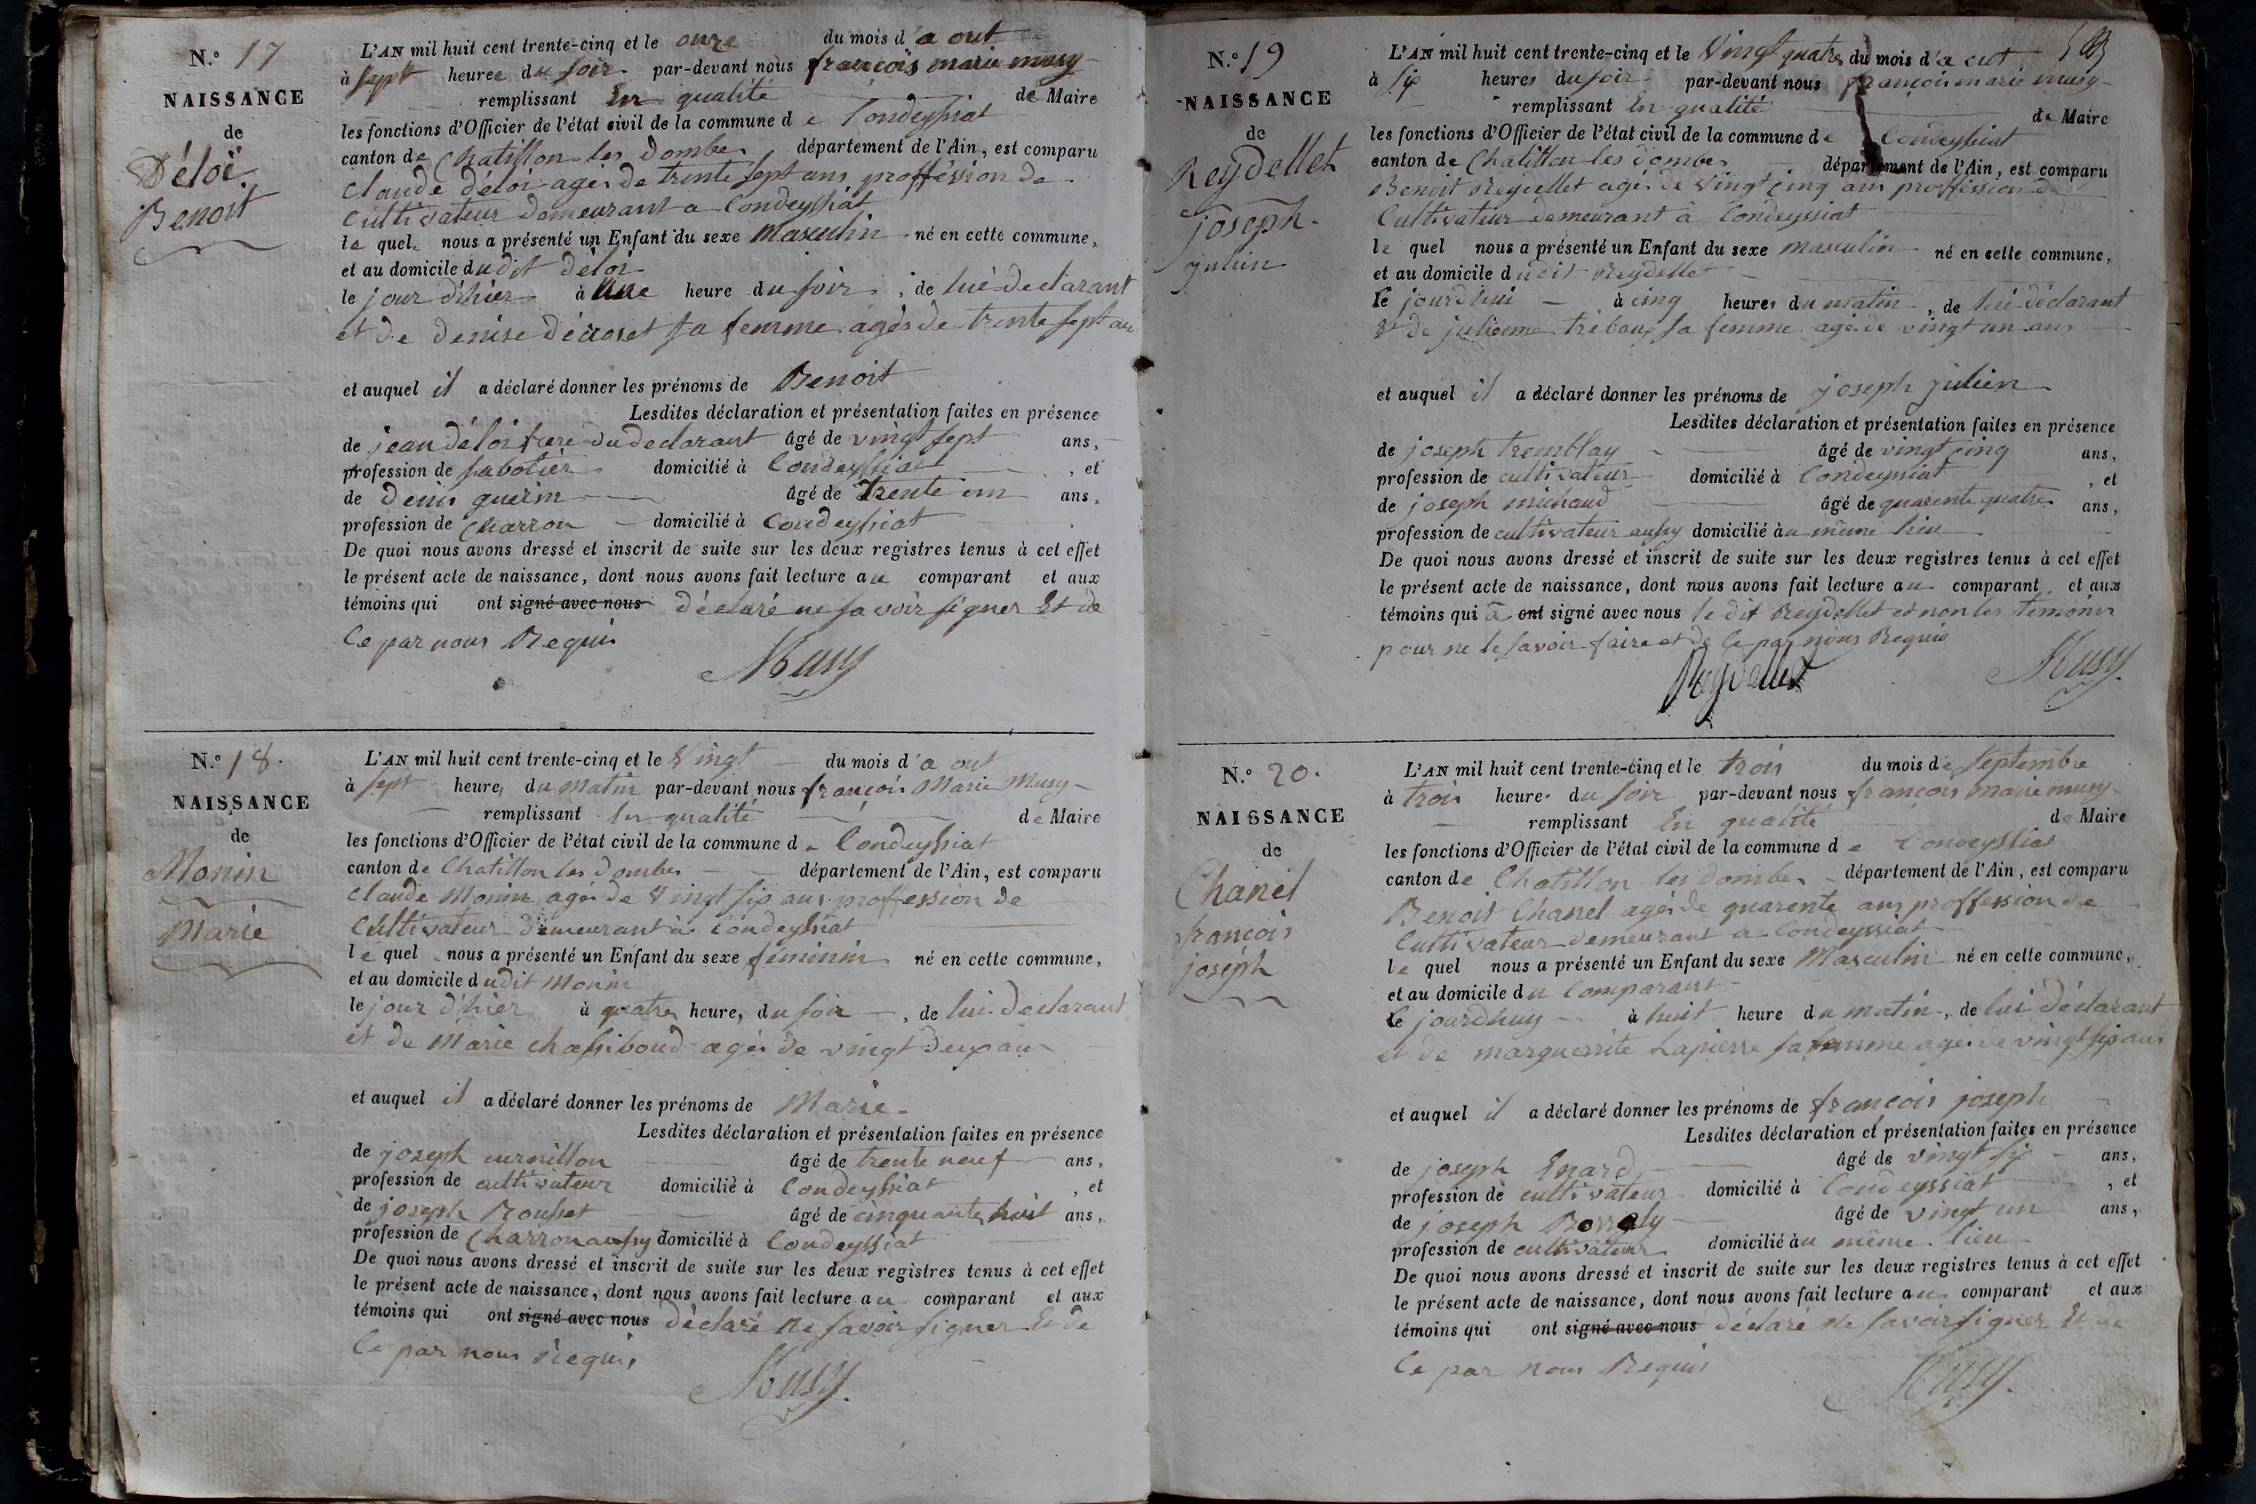 N.° 17
NAISSANCE
de
Déloï
Benoit
L'AN mil huit cent trente-cinq et le onze du mois d'a out
à sept heures du soir par-devant nous françois marie musy
remplissant En qualité de Maire
les fonctions d'Officier de l'état civil de la commune de Condeyssiat
canton de Chatillon les Dombes département de l'Ain, est comparu
Claude déloi agés de trente sept ans proffession de
Cultivateur demeurant a Condeyssiat
le quel nous a présenté un Enfant du sexe Masculin né en cette commune,
et au domicile dudit déloi
le jour d'hier à Une heure du soir, de lui declarant
et de denise décroset sa femme agés de trente sept an
et auquel il a déclaré donner les prénoms de Benoit
Lesdites déclaration et présentation faites en présence
de jean déloi frere du declarant âgé de vingt sept ans,
profession de sabotier domicilié à Condeyssiat, et
de Denis guerin âgé de trente un ans,
profession de Charron domicilié à Condeyssiat
De quoi nous avons dressé et inscrit de suite sur les deux registres tenus à cet effet
le présent acte de naissance, dont nous avons fait lecture au comparant et aux
témoins qui ont signé avec nous déclaré ne savoir signer Et de
Ce par nous Requis
Musy
N.° 18.
NAISSANCE
de
Monin
Marie
L'AN mil huit cent trente-cinq et le Vingt du mois d'a out
à sept heures du matin par-devant nous françois Marie Musy
remplissant En qualité de Maire
les fonctions d'Officier de l'état civil de la commune de Condeyssiat
canton de Chatillon les Dombes département de l'Ain, est comparu
Claude Monin agés de Vingt six ans proffession de
Cultivateur demeurant à Condeyssiat
le quel nous a présenté un Enfant du sexe féminin né en cette commune,
et au domicile dudit Monin
le jour d'hier à quatres heures du soir, de lui declarant
et de Marie Chassiboud agés de vingt deux ans
et auquel il a déclaré donner les prénoms de Marie
Lesdites déclaration et présentation faites en présence
de joseph âgé de trente neuf ans,
profession de cultivateur domicilié à Condeyssiat, et
de joseph Rousset âgé de cinquante huit ans,
profession de Charron aussy domicilié à Condeyssiat
De quoi nous avons dressé et inscrit de suite sur les deux registres tenus à cet effet
le présent acte de naissance, dont nous avons fait lecture au comparant et aux
témoins qui ont signé avec nous déclaré ne savoir signer Et de
Ce par nous Requis
Musy
N.° 19
NAISSANCE
de
Reydellet
joseph
julien
L'AN mil huit cent trente-cinq et le Vingt quatres du mois d'a out
à six heures du soir par-devant nous françois marie musy
remplissant En qualité de Maire
les fonctions d'Officier de l'état civil de la commune de Condeyssiat
canton de Chatillon les dombes département de l'Ain, est comparu
Benoit Reydellet agés de Vingt cinq ans proffession de
Cultivateur demeurant à Condeyssiat
le quel nous a présenté un Enfant du sexe masculin né en cette commune,
et au domicile dudit Reydellet
le jourdhui à cinq heures du matin, de lui déclarant
Et de julienne tréboux sa femme agés de vingt un ans
et auquel il a déclaré donner les prénoms de joseph julien
Lesdites déclaration et présentation faites en présence
de joseph tremblay âgé de vingt cinq ans,
profession de cultivateur domicilié à Condeyssiat, et
de joseph michaud âgé de quarente quatre ans,
profession de cultivateur aussy domicilié au même lieu
De quoi nous avons dressé et inscrit de suite sur les deux registres tenus à cet effet
le présent acte de naissance, dont nous avons fait lecture au comparant et aux
témoins qui à ont signé avec nous le dit Reydellet et non les temoins
pour ne le savoir faire et de Ce par nous Requis
Reydellet
Musy
N.° 20.
NAISSANCE
de
Chanel
françois
joseph
L'AN mil huit cent trente-cinq et le trois du mois de Septembre
à trois heures du soir par-devant nous françois marie musy
remplissant En qualité de Maire
les fonctions d'Officier de l'état civil de la commune de Condeyssiat
canton de Chatillon les dombes département de l'Ain, est comparu
Benoit Chanel agés de quarente ans proffession de
Cultivateur demeurant a Condeyssiat
le quel nous a présenté un Enfant du sexe Masculin né en cette commune,
et au domicile du Comparant
le jourdhuy à huit heure du matin, de lui déclarant
et de marguerrite Lapierre sa femme agés de vingt six ans
et auquel il a déclaré donner les prénoms de françois joseph
Lesdites déclaration et présentation faites en présence
de joseph Enard âgé de vingt six ans,
profession de cultivateur domicilié à Condeyssiat, et
de joseph âgé de vingt un ans,
profession de cultivateur domicilié au même lieu
De quoi nous avons dressé et inscrit de suite sur les deux registres tenus à cet effet
le présent acte de naissance, dont nous avons fait lecture au comparant et aux
témoins qui ont signé avec nous déclaré ne savoir signer Et de
Ce par nous Requis
Musy